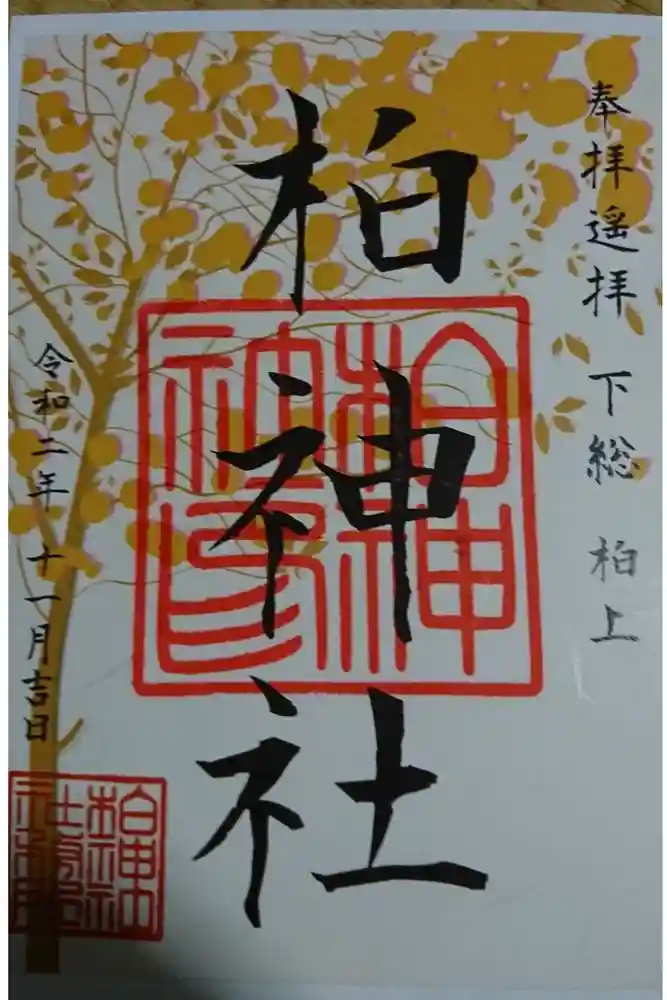 奉拝遥拝 下総 柏上
柏神社
柏神社印
令和二年 十一月吉日